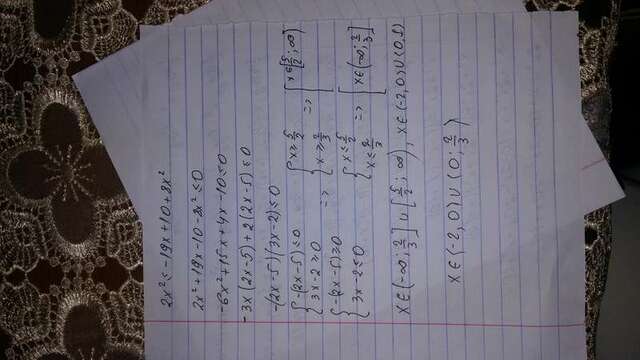 2x² ≤ -19x+10+8x²
2x²+19x-10-8x² ≤0
-6x²+15x+4x-10≤0
-3x(2x-5)+2(2x-5)≤0
-(2x-5)(3x-2)≤0
{-(2x-5)≤0 => {x≥5/2 => [x∈[5/2;∞)
{3x-2≥0 {x≥2/3
{-(2x-5)≥0 {x≤5/2 => [x∈(-∞;2/3]
{3x-2≤0 {x≤2/3
x∈(-∞;2/3]∪[5/2;∞), x∈(-2,0)∪(0,1)
x∈(-2,0)∪(0;2/3)